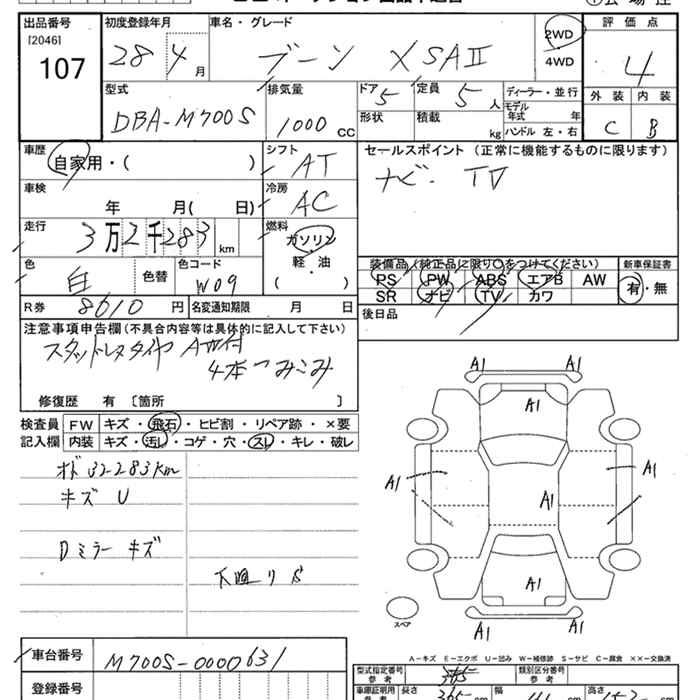 出品番号 初度登録年月 車名・グレード 評価点
[2046]
107
28年 4月 ブーン X SAⅡ 2WD 4WD 4
型式 排気量 ドア 5 定員 5人 ディーラー・並行 外装 内装
DBA-M700S 1000 CC 形状 積載 kg モデル年式 年 C B
ハンドル 左・右
車歴 シフト セールスポイント (正常に機能するものに限ります)
自家用・( ) AT ナビ・ TV
車検 冷房
年 月( 日) AC
走行 燃料
3万2千283km ガソリン
軽・油
( )
色 色替 色コード 装備品(純正品に限り〇をつけてください) 新車保証書
白 W09 PS PW ABS エアB AW 有・無
SR ナビ TV カワ
R券 8610円 名変通知期限 月 日 後日品
注意事項申告欄(不具合内容等は具体的に記入して下さい)
スタッドレスタイヤ AW付
4本つみこみ
修復歴 有 〔箇所 〕
検査員 FW キズ・飛石・ヒビ割・リペア跡・×要
記入欄 内装 キズ・汚れ・コゲ・穴・スレ・キレ・破レ
オド 32283km
キズ U
Dミラー キズ
下廻りS
A1 A1
A1
A1 A1
A1
A1
A1 A1
スペア
A-キズ E-エクボ U-凹み W-補修跡 S-サビ C-腐食 ××-交換済
車台番号 M700S-0000631
型式指定番号 参考 類別区分番号 参考
登録番号
車庫証明用 参考 長さ 365 cm 幅 cm 高さ